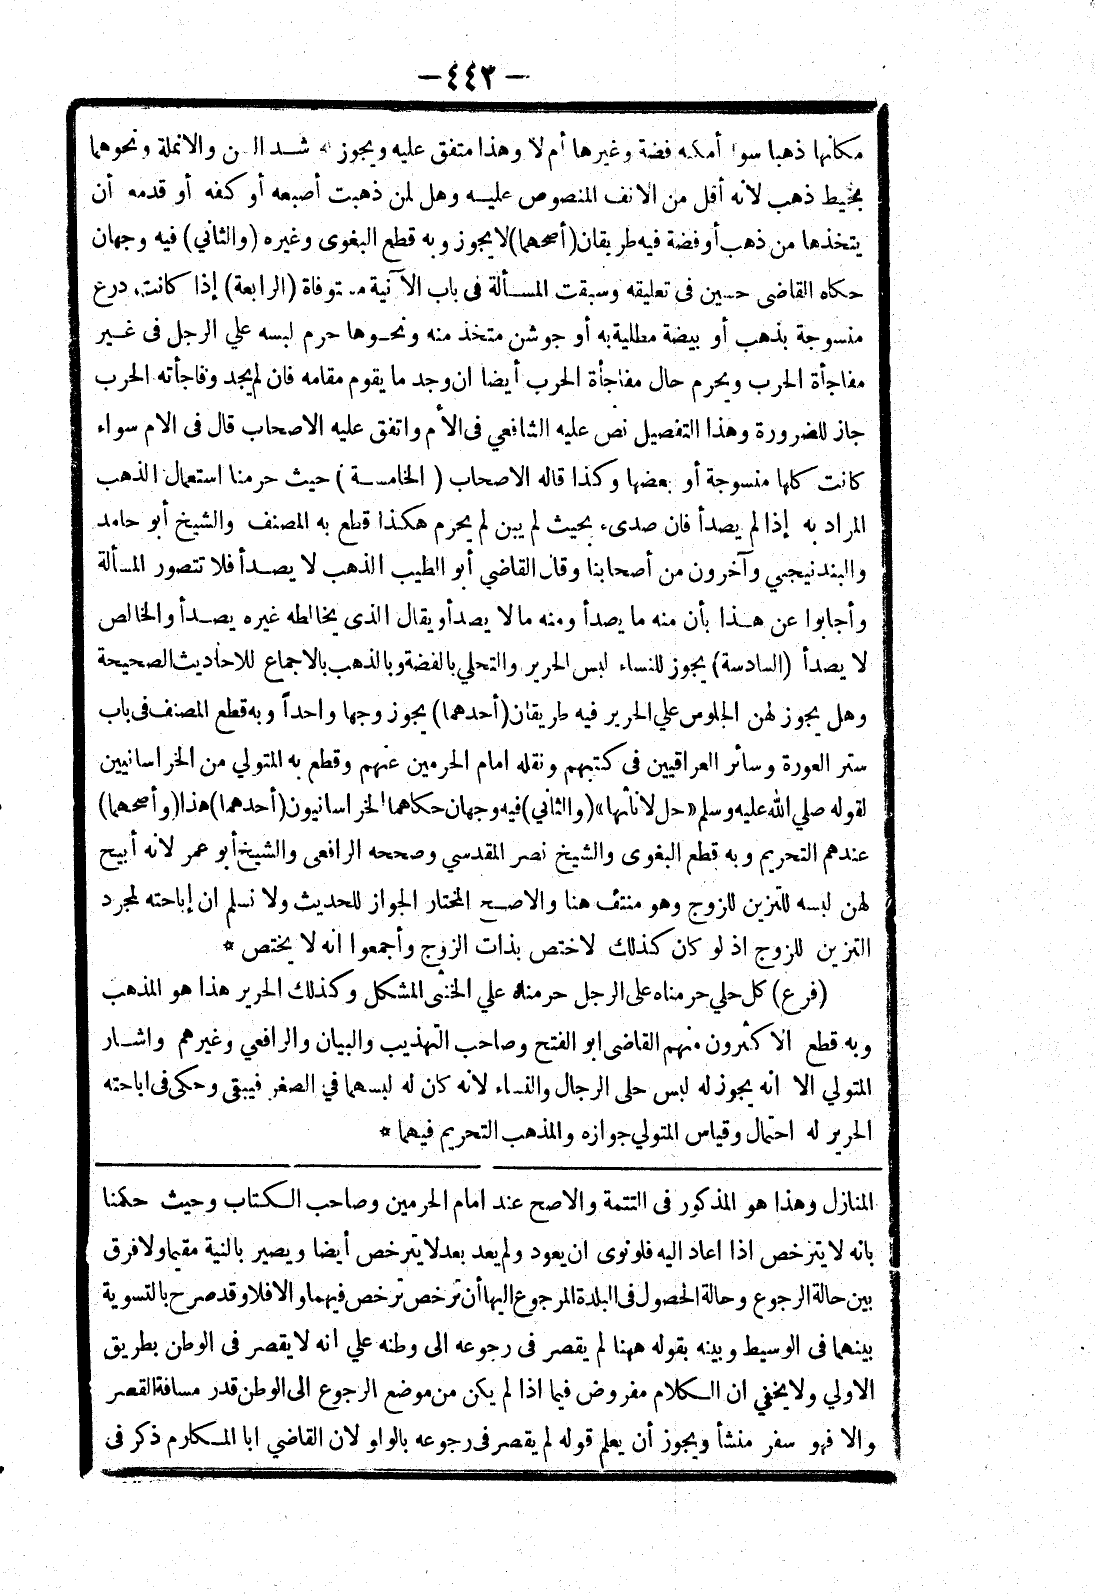 — ٤٤٣ —
مكانها ذهبا سواء أمكنه فضة وغيرها أم لا وهذا متفق عليه ويجوز له شد السن والانملة ونحوهما
بخيط ذهب لانه أقل من الانف المنصوص عليه وهل لمن ذهبت أصبعه أو كفه أو قدمه أن
يتخذها من ذهب أو فضة فيه طريقان (أصحهما) لا يجوز وبه قطع البغوى وغيره (والثاني) فيه وجهان
حكاه القاضى حسين فى تعليقه وسبقت المسألة فى باب الآنية مستوفاة (الرابعة) إذا كانت درع
منسوجة بذهب أو بيضة مطلية به أو جوشن متخذ منه ونحوها حرم لبسه علي الرجل فى غير
مفاجأة الحرب ويحرم حال مفاجأة الحرب أيضا ان وجد ما يقوم مقامه فان لم يجد وفاجأته الحرب
جاز للضرورة وهذا التفصيل نص عليه الشافعي فى الأم واتفق عليه الاصحاب قال فى الام سواء
كانت كلها منسوجة أو بعضها وكذا قاله الاصحاب ( الخامسة ) حيث حرمنا استعمال الذهب
المراد به إذا لم يصدأ فان صدىء بحيث لم يبن لم يحرم هكذا قطع به المصنف والشيخ أبو حامد
والبندنيجي وآخرون من أصحابنا وقال القاضي أبو الطيب الذهب لا يصدأ فلا تتصور المسألة
وأجابوا عن هذا بأن منه ما يصدأ ومنه مالا يصدأ ويقال الذى يخالطه غيره يصدأ والخالص
لا يصدأ (السادسة) يجوز للنساء لبس الحرير والتحلي بالفضة وبالذهب بالاجماع للاحاديث الصحيحة
وهل يجوز لهن الجلوس علي الحرير فيه طريقان (أحدهما) يجوز وجها واحداً وبه قطع المصنف فى باب
ستر العورة وسائر العراقيين فى كتبهم ونقله امام الحرمين عنهم وقطع به المتولي من الخراسانيين
لقوله صلي الله عليه وسلم «حل لاناثها» (والثاني) فيه وجهان حكاهما الخراسانيون (أحدهما) هذا (وأصحهما)
عندهم التحريم وبه قطع البغوى والشيخ نصر المقدسي وصححه الرافعى والشيخ أبو عمر لانه أبيح
لهن لبسه للتزين للزوج وهو منتف هنا والاصح المختار الجواز للحديث ولا نسلم ان إباحته لمجرد
التزين للزوج اذ لو كان كذلك لاختص بذات الزوج وأجمعوا انه لا يختص *
(فرع) كل حلي حرمناه على الرجل حرمناه علي الخنثى المشكل وكذلك الحرير هذا هو المذهب
وبه قطع الاكثرون منهم القاضى ابو الفتح وصاحب التهذيب والبيان والرافعي وغيرهم واشار
المتولي الا انه يجوز له لبس حلى الرجال والنساء لانه كان له لبسهما في الصغر فيبقى وحكى فى اباحته
الحرير له احتمال وقياس المتولي جوازه والمذهب التحريم فيهما *
المنازل وهذا هو المذكور فى التتمة والاصح عند امام الحرمين وصاحب الكتاب وحيث حكمنا
بانه لا يترخص اذا اعاد اليه فلو نوى ان يعود ولم يعد بعد لا يترخص أيضا ويصير بالنية مقيما ولا فرق
بين حالة الرجوع وحالة الحصول فى البلدة المرجوع اليها أن ترخص ترخص فيهما والا فلا وقد صرح بالتسوية
بينهما فى الوسيط وبينه بقوله ههنا لم يقصر فى رجوعه الى وطنه علي انه لا يقصر فى الوطن بطريق
الاولي ولا يخفي ان الكلام مفروض فيما اذا لم يكن من موضع الرجوع الى الوطن قدر مسافة القصر
والا فهو سفر منشأ ويجوز أن يعلم قوله لم يقصر فى رجوعه بالواو لان القاضي ابا المكارم ذكر فى